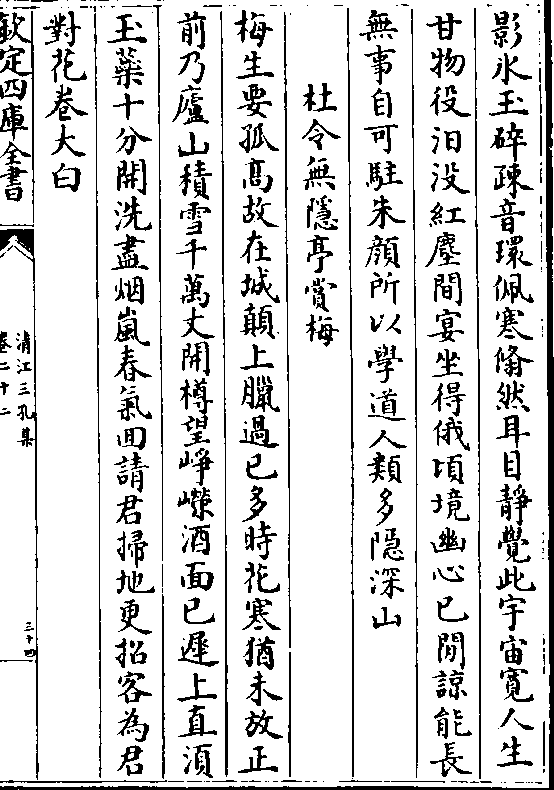 影氷玉碎疎音環佩寒翛然耳目靜覺此宇宙寛人生
甘物役汨没紅塵間宴坐得俄頃境幽心已閒諒能長
無事自可駐朱顔所以學道人類多隱深山
杜令無隱亭賞梅
梅生要孤高故在城顛上臘過已多時花寒猶未放正
前乃廬山積雪千萬丈開樽望崢嶸酒面已遲上直須
玉蘂十分開洗盡烟嵐春氣囬請君掃地更招客為君
對花卷大白
欽定四庫全書
清江三孔集
卷二十二
三十四